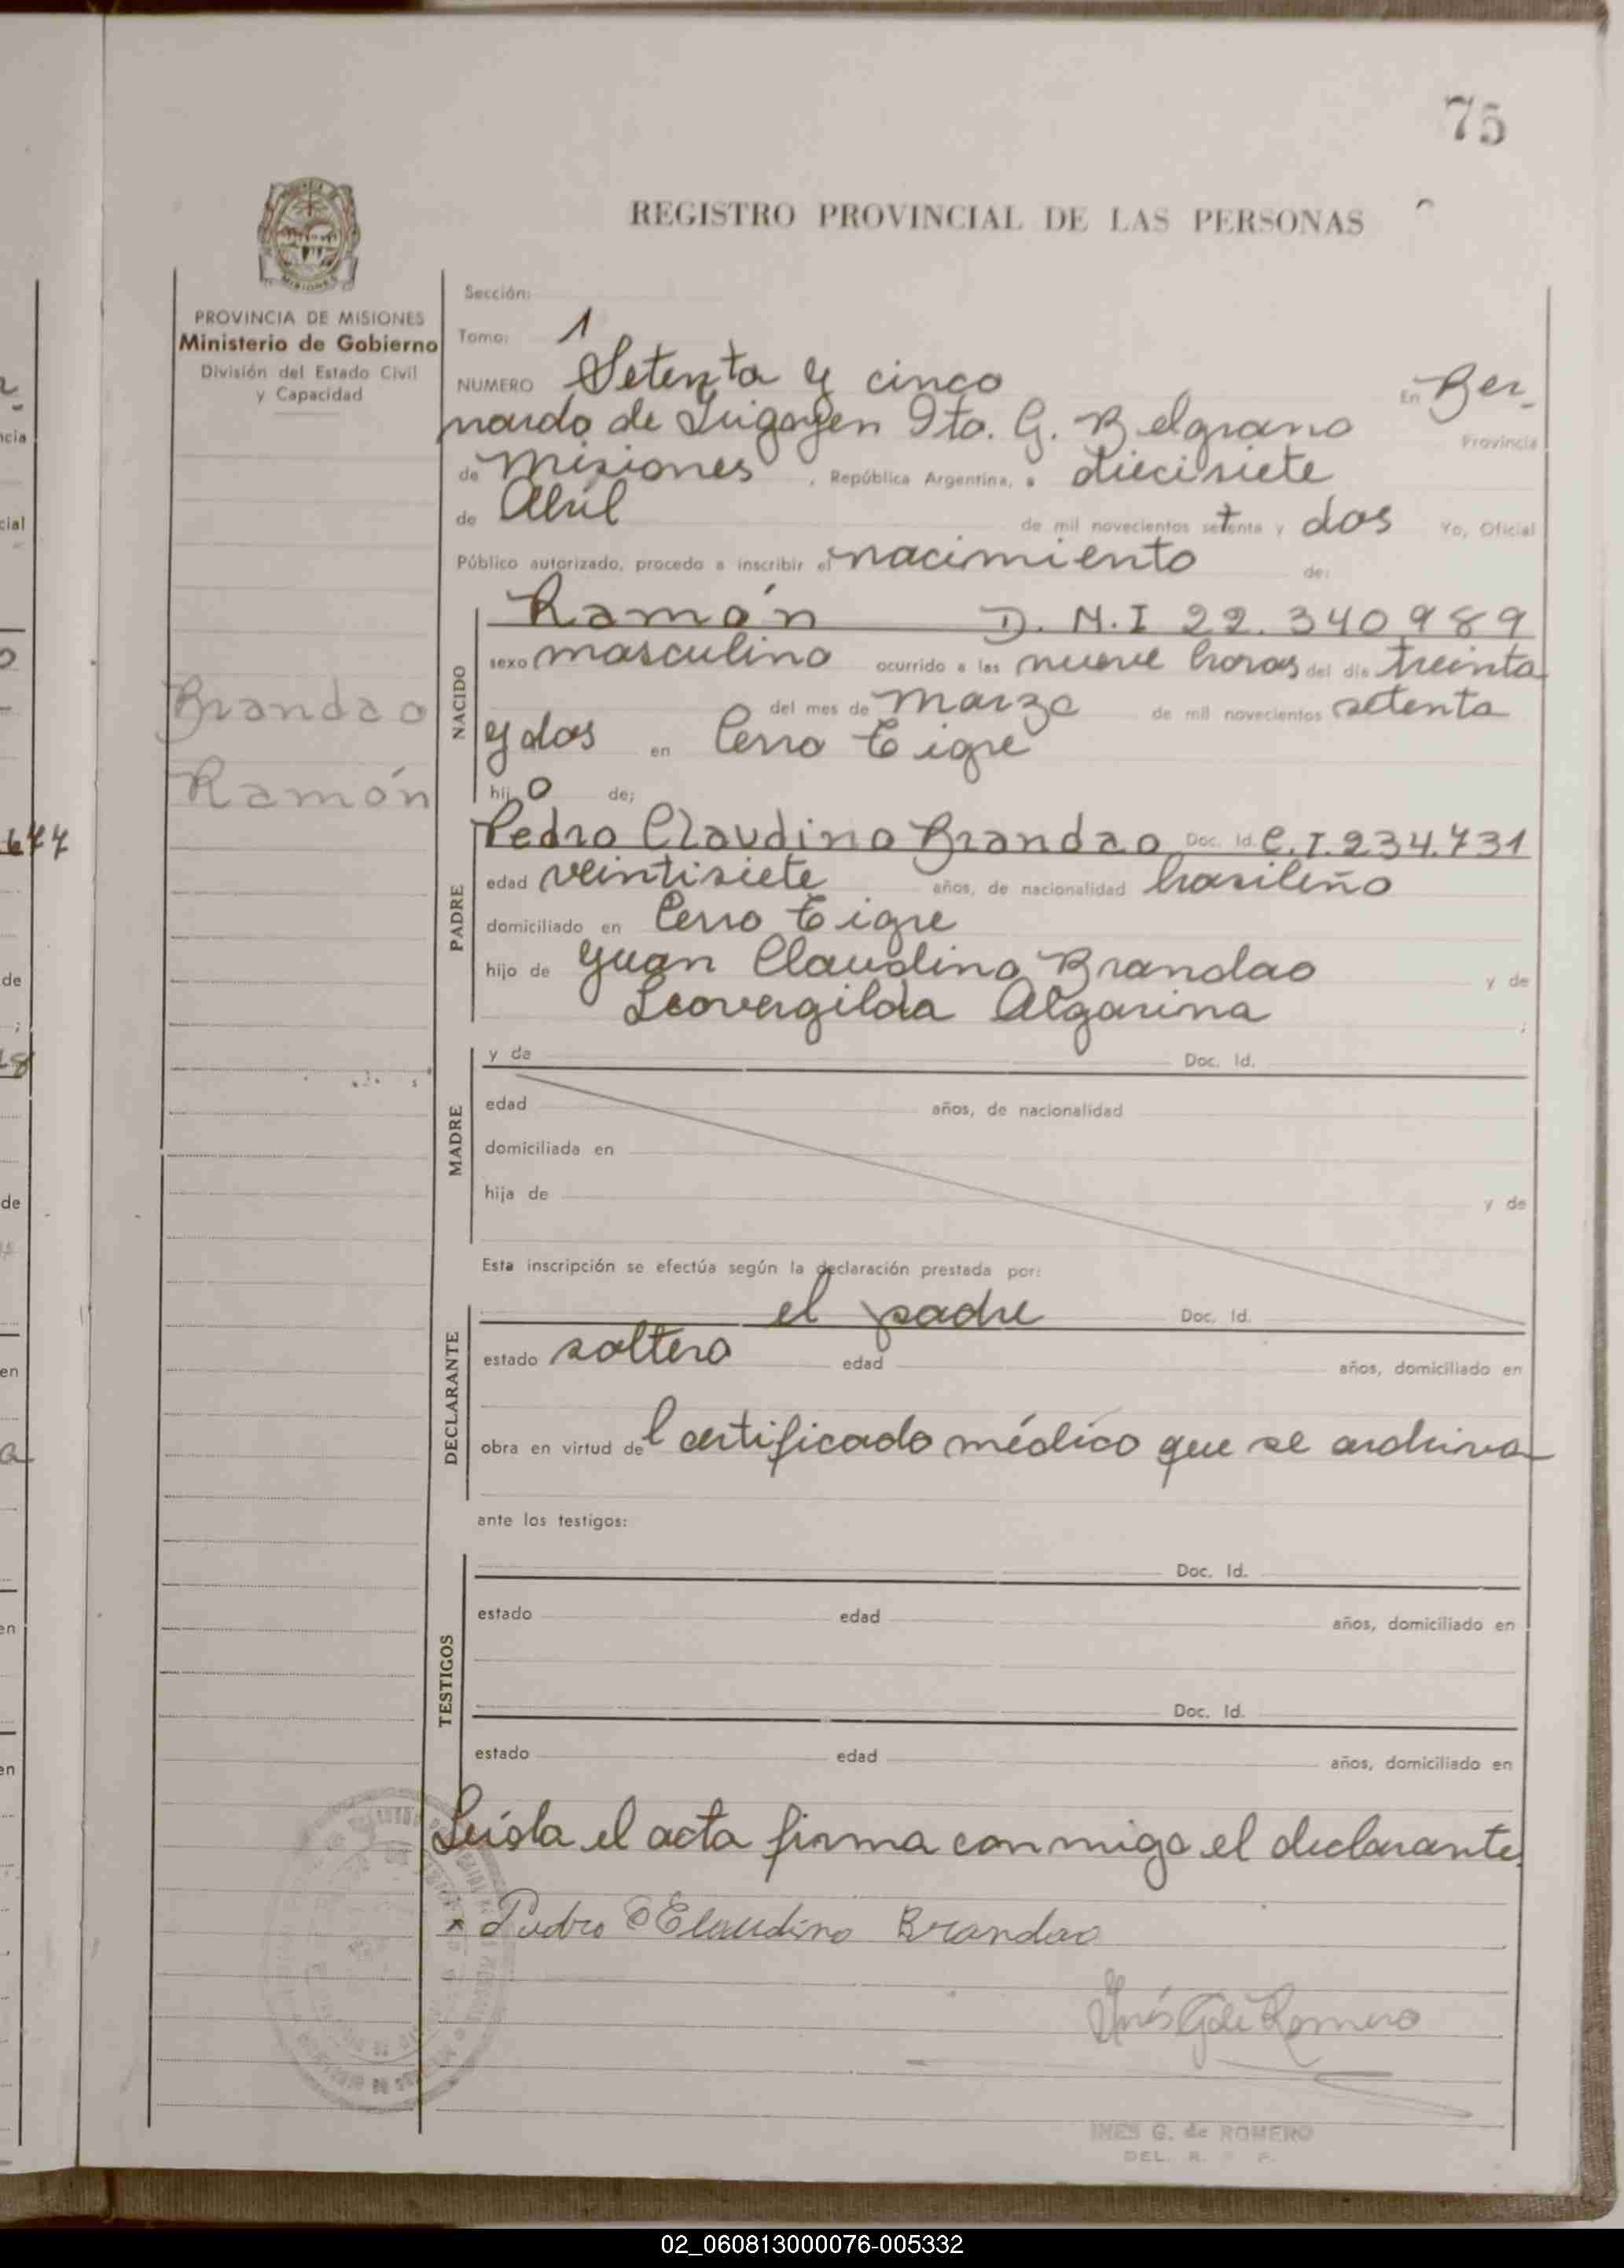 75
REGISTRO PROVINCIAL DE LAS PERSONAS
MISIONES
PROVINCIA DE MISIONES
Ministerio de Gobierno
División del Estado Civil
y Capacidad
Brandao
Ramón
Sección:
Tomo: 1
NUMERO Setenta y cinco En Ber_
nardo de Irigoyen Dto. G. Belgrano Provincia
de Misiones, República Argentina, a diecisiete
de Abril de mil novecientos setenta y dos Yo, Oficial
Público autorizado, procedo a inscribir el nacimiento de:
NACIDO
Ramón D.N.I 22.340989
sexo masculino ocurrido a las nueve horas del día treinta
del mes de marzo de mil novecientos setenta
y dos en Cerro Tigre
hijo de;
PADRE
Pedro Claudino Brandao Doc. Id. C.I.234.731
edad veintisiete años, de nacionalidad brasileño
domiciliado en Cerro Tigre
hijo de Juan Claudino Brandao y de
Leovergilda Algarina ;
MADRE
y de Doc. Id.
edad años, de nacionalidad
domiciliada en
hija de y de
Esta inscripción se efectúa según la declaración prestada por:
DECLARANTE
el padre Doc. Id.
estado soltero edad años, domiciliado en
obra en virtud del certificado médico que se archiva
ante los testigos:
TESTIGOS
Doc. Id.
estado edad años, domiciliado en
Doc. Id.
estado edad años, domiciliado en
Leída el acta firma conmigo el declarante.
x Pedro Claudino Brandao
Inés G de Romero
INES G. de ROMERO
DEL. R.
677
02_060813000076-005332